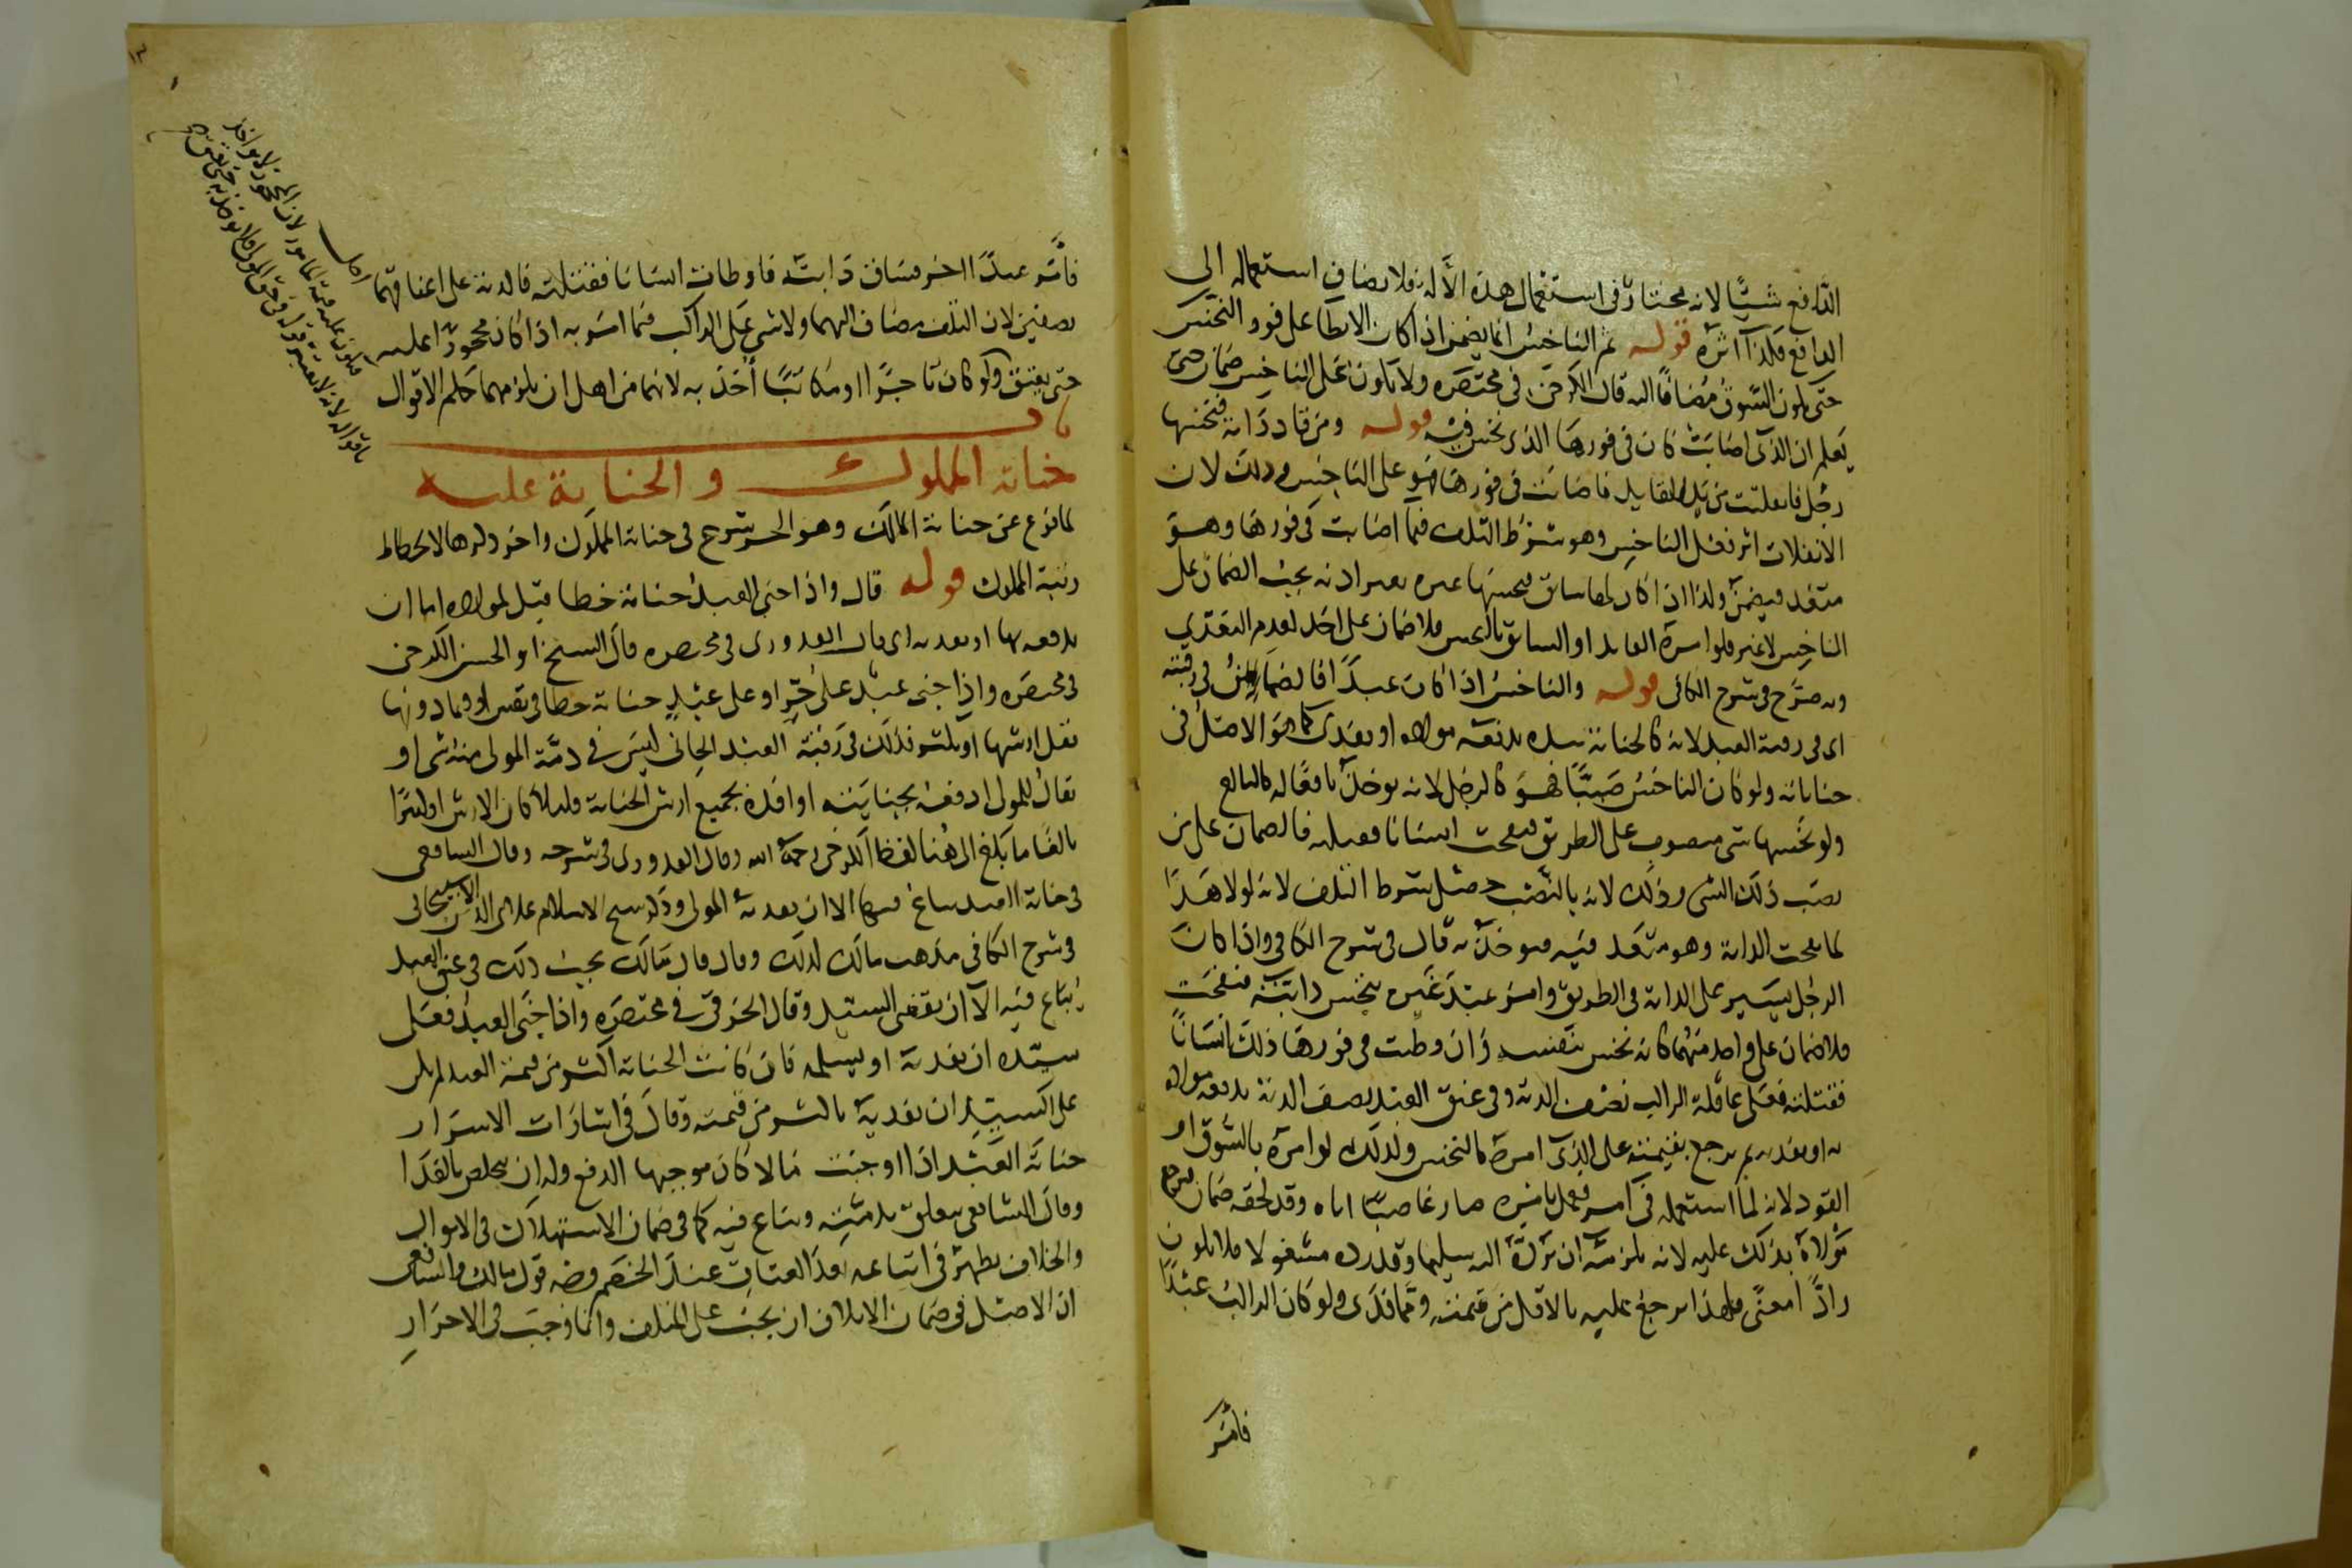 الدافع شيئا لانه مختار في استعمال هذه الالة فلا يضاف استعماله الى
الدافع فكذا اثره قوله ثم الناخس انما يضمن اذا كان الايطا على فور النخس
حتى يكون السوق مضافا اليه قال الكرخي في مختصره ولا يكون على الناخس ضمان حتى
يعلم ان الذي اصابت كان في فورها الذي نخس فيه قوله ومن قاد دابة فنخسها
رجل فانفلتت من يد القايد فاصابت في فورها فهو على الناخس وذلك لان
الانفلات اثر فعل الناخس وهو شرط التلف فيما اصابت في فورها وهو
متعد فيضمن ولذا اذا كان لها سايق فنخسها غيره بغير اذنه يجب الضمان على
الناخس لا غير فلو امره القايد او السايق بالنخس فلا ضمان على احد لعدم التعدي
وبه صرح في شرح الكافي قوله والناخس اذا كان عبدا فالضمان في رقبته
اى في رقبة العبد لانه كالجناية بيده يدفعه مولاه او يفدى كما هو الاصل في
جناياته ولو كان الناخس صبيا فهو كالرجل لانه يوخذ بافعاله كالبالغ
ولو نخسها شى منصوب على الطريق فنفحت انسانا فقتلته فالضمان على من
نصب ذلك الشى وذلك لانه بالنصب مثل شرط التلف لانه لولا هذا
لما نفحت الدابة وهو متعد فيه فيوخذ به قال في شرح الكافي واذا كان
الرجل يسير على الدابة في الطريق وامر عبد غيره بنخس دابته فنفحت
فلا ضمان على واحد منهما كانه نخس بنفسه وان وطيت في فورها ذلك انسانا
فقتلته فعلى عاقلة الراكب نصف الدية وفي عنق العبد نصف الدية يدفعه مولاه
به او يفديه ثم يرجع بقيمته على الذى امره بالنخس ولذلك لو امره بالسوق او
القود لانه لما استعمله في امر فعل بامره صار غاصبا اياه وقد لحقه ضمان فيرجع
مولاه بذلك عليه لانه يلزمه ان يرده اليه سليما وقد رده مشغولا فلا يكون
رادا معنى فلهذا يرجع عليه بالاقل من قيمته ومما فدى ولو كان الراكب عبدا
فامر
فامر عبدا اخر فساق دابته فاوطات انسانا فقتلته فالدية على اعناقهما
نصفين لان التلف مضاف اليهما ولا شى على الراكب فيما امر به اذا كان محجورا عليه
حتى يعتق ولو كان تاجرا او مكاتبا أخذ به لانهما من اهل ان يلزمهما حكم الاقوال
باب
جناية المملوك والجناية عليه
لما فرغ عن جناية المالك وهو الحر شرع في جناية المملوك واخر ذكرها لانحطاط
رتبة المملوك قوله قال واذا جنى العبد جناية خطا قيل لمولاه اما ان
يدفعه بها او يفديه اى قال القدورى في مختصره قال الشيخ ابو الحسن الكرخي
في مختصره واذا جنى عبد على حر او على عبد جناية خطا في نفس او فيما دونها
فقل ارشها او كثر فذلك في رقبة العبد الجاني ليس في ذمة المولى منه شى او
يقال للمولى ادفعه بجنايته او افده بجميع ارش الجناية قليلا كان الارش او كثيرا
بالغا ما بلغ الى هنا لفظ الكرخي رحمه الله وقال القدورى في شرحه وقال الشافعي
في جناية العبد يباع فيها الا ان يفديه المولى وذكر شيخ الاسلام علاء الدين الاسبيجابي
في شرح الكافي مذهب مالك كذلك وقال قال مالك يجب ذلك في عنق العبد
يباع فيه الا ان يقضى السيد وقال الخرقي في مختصره واذا جنى العبد فعلى
سيده ان يفديه او يسلمه فان كانت الجناية اكثر من قيمة العبد لم يكن
على السيد ان يفديه باكثر من قيمته وقال في اشارات الاسرار
جناية العبد اذا اوجبت مالا كان موجبها الدفع وله ان يتخلص بالفدا
وقال الشافعي يتعلق بذمته ويباع فيه كما في ضمان الاستهلاك في الاموال
والخلاف يظهر في اتباعه بعد العتاق عند الخصم وجه قول مالك والشافعي
ان الاصل في ضمان الاتلاف ان يجب على المتلف وانما وجب في الاحرار